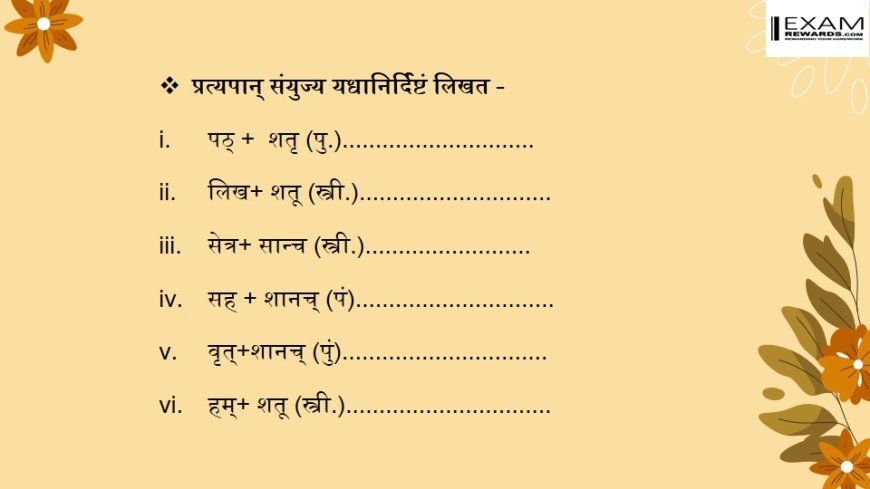 EXAM
REWARDS.COM
REWARDING YOUR HARDWORK
❖ प्रत्यपान् संयुज्य यधानिर्दिष्टं लिखत -
i. पठ् + शतृ (पु.).............................
ii. लिख+ शतू (स्त्री.).............................
iii. सेत्र+ सान्च (स्त्री.).........................
iv. सह + शानच् (पं)..............................
v. वृत्+शानच् (पुं)...............................
vi. हम्+ शतू (स्त्री.)...............................